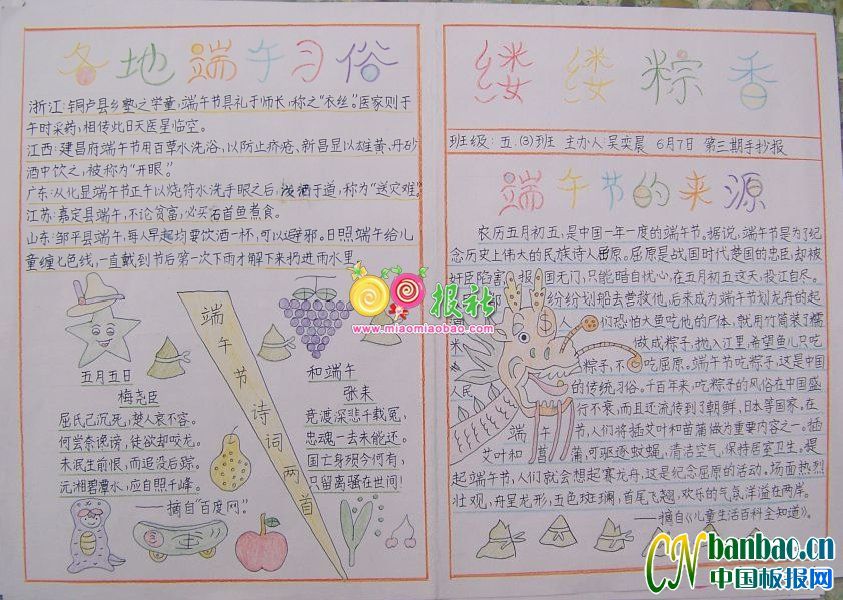 各地端午习俗
浙江:铜卢县乡塾之学童,端午节具礼于师长,称之"衣丝。"医家则于
午时采药,相传此日天医星临空。
江西:建昌府端午节用百草水洗浴,以防止疥疮、新昌显以雄黄、丹砂
酒中饮之,被称为"开眼。"
广东:从化显端午节正午以烧符水洗手眼之后,泼洒于道,称为"送灾难。"
江苏:嘉定县端午,不论贫富,必买石首鱼煮食。
山东:邹平县端午,每人早起均要饮酒一杯,可以避邪。日照端午给儿
童缠七色线,一直戴到节后第一次下雨才解下来扔进雨水里
端午节诗词两首
五月五日
梅尧臣
屈氏已沉死,楚人哀不容。
何尝奈谗谤,徒欲却咬龙。
未泯生前恨,而追没后踪。
沅湘碧潭水,应自照千峰。
——摘自"百度网。"
和端午
张耒
竞渡深悲千载冤,
忠魂一去未能还。
国亡身殒今何有,
只留离骚在世间!
缕缕粽香
班级:五.(3)班 主办人:吴奕晨 6月7日 第三期手抄报
端午节的来源
农历五月初五,是中国一年一度的端午节。据说,端午节是为了纪
念历史上伟大的民族诗人屈原。屈原是战国时代楚国的忠臣,却被
奸臣陷害 报国无门,只能暗自忧心,在五月初五这天,投江自尽。
纷纷划船去营救他,后来成为端午节划龙舟的起
人们恐怕大鱼吃他的尸体,就用竹筒装了糯
米 做成粽子,抛入江里,希望鱼儿只吃
粽子,不吃屈原。端午节吃粽子,这是中国
人民 的传统习俗。千百年来,吃粽子的风俗在中国盛
行不衰,而且还流传到了朝鲜,日本等国家,在
端午节,人们将插艾叶和菖蒲做为重要内容之一。插
艾叶和菖蒲,可驱逐蚊蝇,清洁空气,保持居室卫生。提
起端午节,人们就会想起赛龙舟,这是纪念屈原的活动。场面热烈
壮观,舟呈龙形,五色斑斓,首尾飞翘,欢乐的气氛洋溢在两岸。
——摘自《儿童生活百科全知道》。
报社
www.miaomiaobao.com
CN banbao.cn
中国板报网